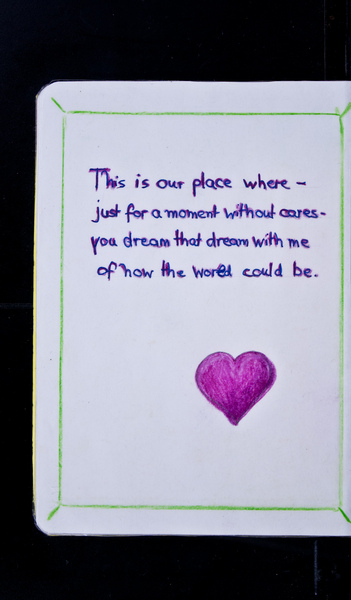 This is our place where -
just for a moment without cares-
you dream that dream with me
of how the world could be.